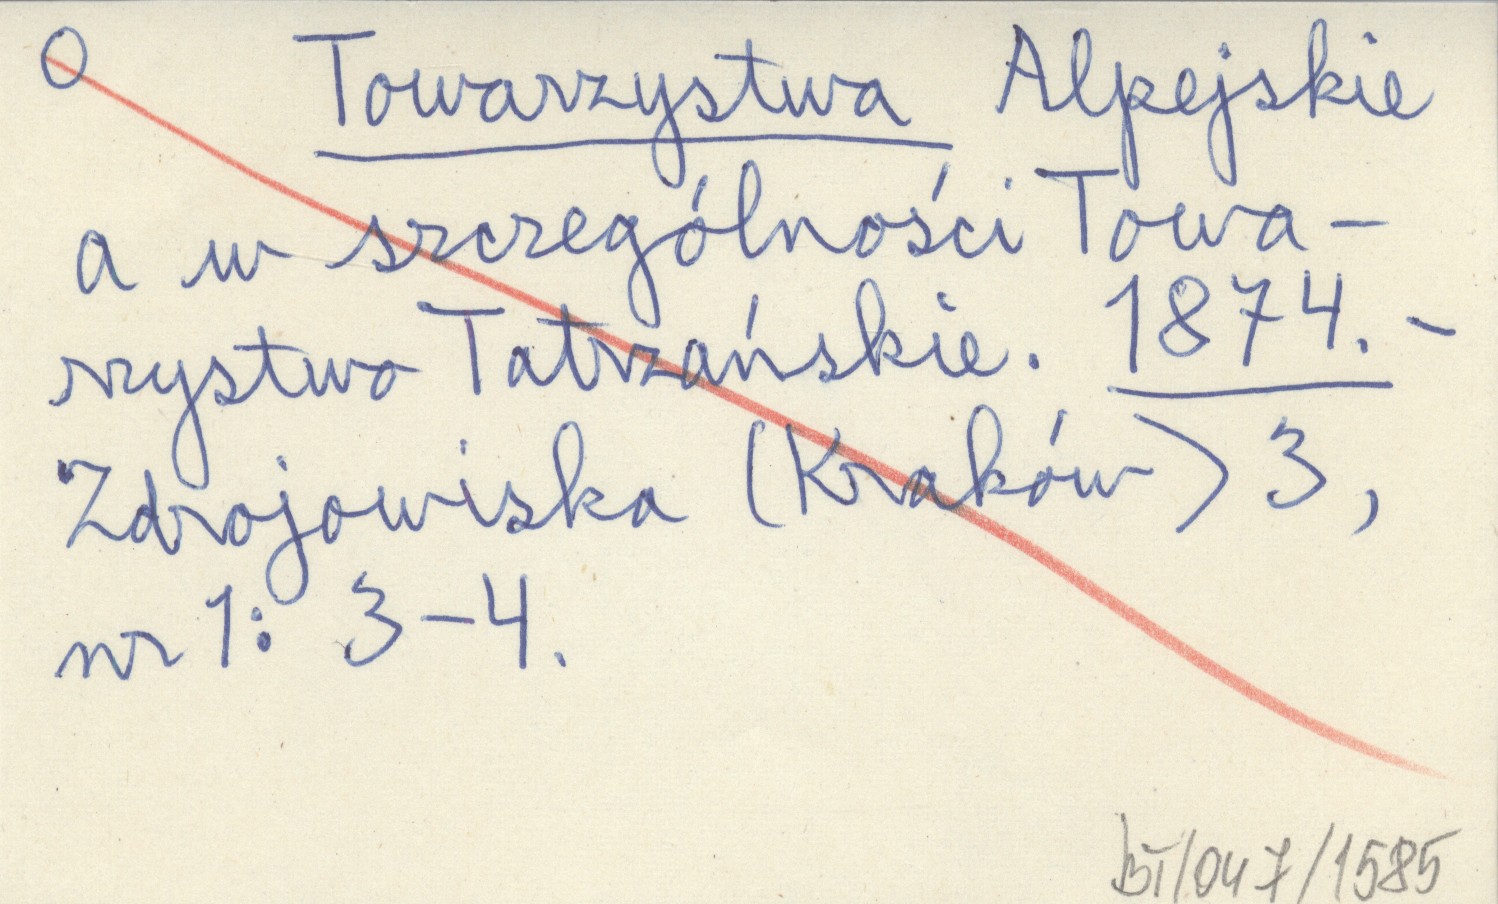 O Towarzystwa Alpejskie
a w szczególności Towa-
rzystwo Tatrzańskie. 1874. -
Zdrojowiska (Kraków) 3,
nr 1: 3-4.
BT/047/1585